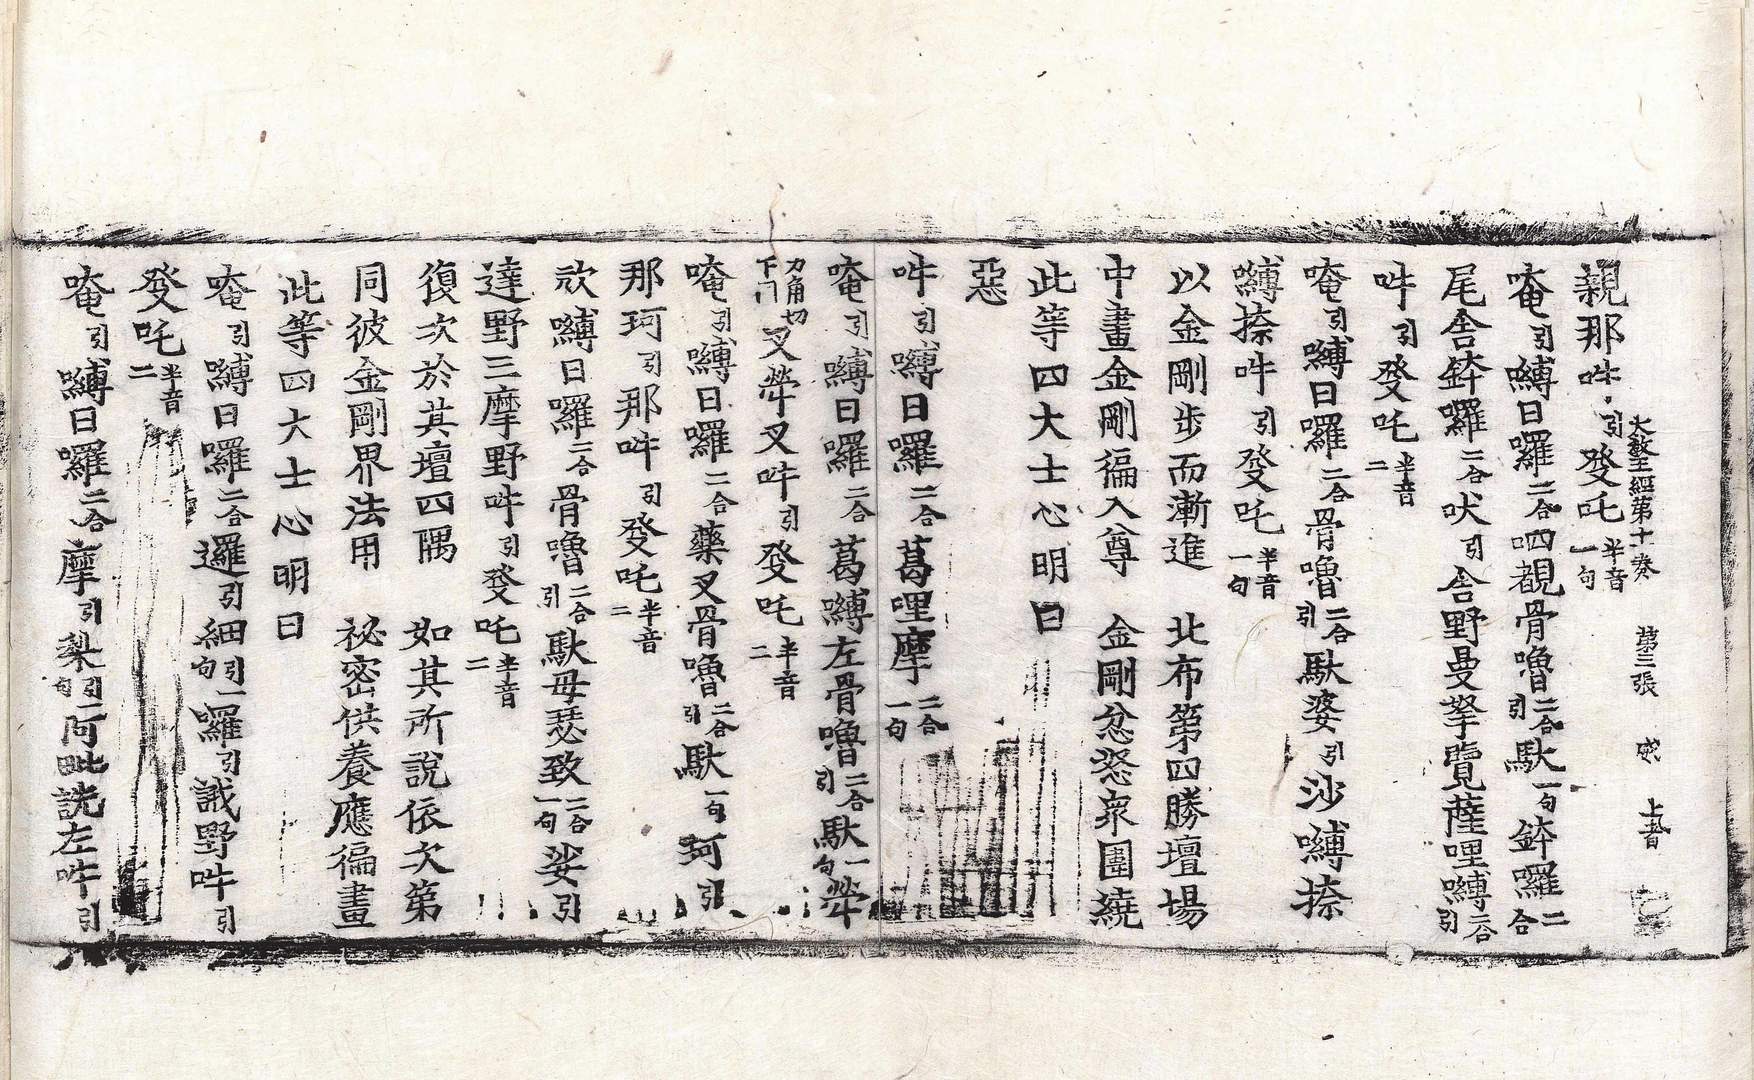 大敎王經第十一卷 第三張
親那吽引發吒半音一句
唵引嚩日囉二合呬覩骨嚕二合引馱一句鉢囉二合
尾舍鉢囉二合吠引舍野曼拏覽薩哩嚩二合引
吽引發吒半音二
唵引嚩日囉二合骨嚕二合引馱婆引沙嚩捺
嚩捺吽引發吒半音一句
以金剛步而漸進 北布第四勝壇場
中畫金剛徧入尊 金剛忿怒衆圍繞
此等四大士心明曰
惡
吽引嚩日囉二合葛哩摩二合一句
唵引嚩日囉二合葛嚩左骨嚕二合引馱一句犖
力角切下同叉犖叉吽引發吒半音二
唵引嚩日囉二合藥叉骨嚕二合引馱一句珂引
那珂引那吽引發吒半音二
欤嚩日囉二合骨嚕二合引馱母瑟致二合一句娑引
達野三摩野吽引發吒半音二
復次於其壇四隅 如其所說依次第
同彼金剛界法用 祕密供養應徧畫
此等四大士心明曰
唵引嚩日囉二合邏引細引一句囉引誐野吽引
發吒半音二
唵引嚩日囉二合摩引梨引一句阿毗詵左吽引